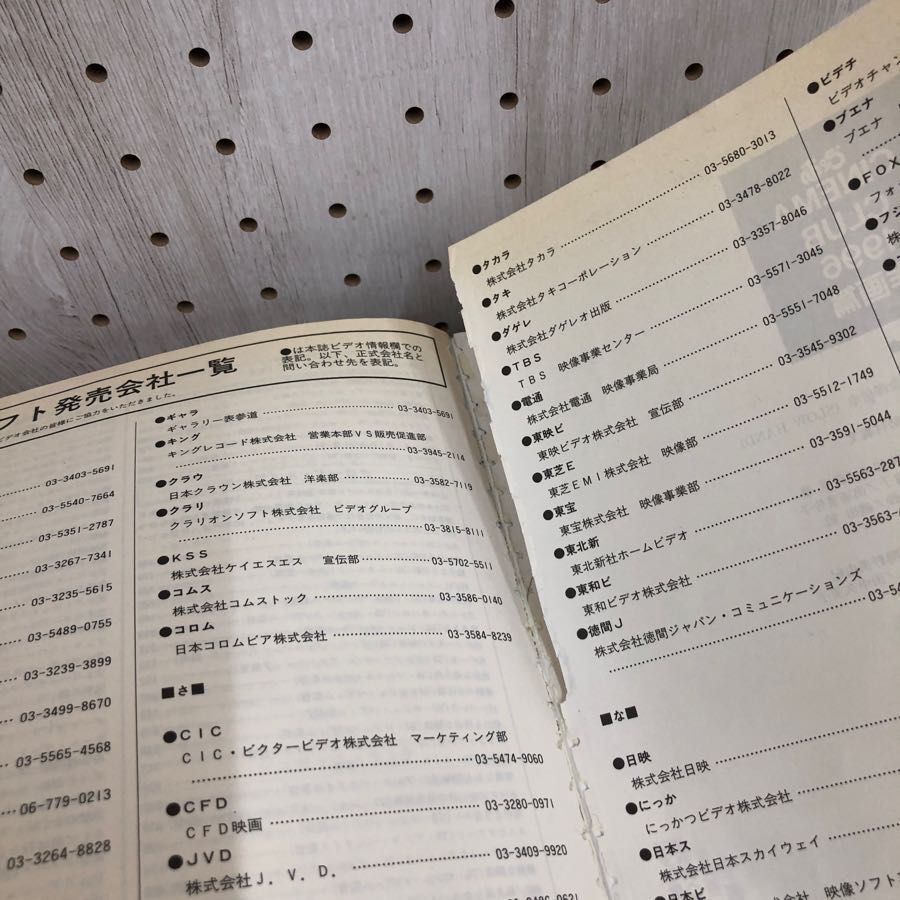 フト発売会社一覧
ビデオ会社の皆様にご協力をいただきました。
●は本誌ビデオ情報欄での
表記。以下、正式会社名と
問い合わせ先を表記。
03-3403-5691
03-5540-7664
03-5351-2787
03-3267-7341
03-3235-5615
03-5489-0755
03-3239-3899
03-3499-8670
03-5565-4568
06-779-0213
03-3264-8828
●ギャラ
ギャラリー表参道 03-3403-5691
●キング
キングレコード株式会社 営業本部VS販売促進部
03-3945-2114
●クラウ
日本クラウン株式会社 洋楽部 03-3582-7119
●クラリ
クラリオンソフト株式会社 ビデオグループ
03-3815-8111
●KSS
株式会社ケイエスエス 宣伝部 03-5702-5511
●コムス
株式会社コムストック 03-3586-0140
●コロム
日本コロムビア株式会社 03-3584-8239
■さ■
●CIC
CIC・ビクタービデオ株式会社 マーケティング部
03-5474-9060
●CFD
CFD映画 03-3280-0971
●JVD
株式会社J.V.D. 03-3409-9920
●タカラ
株式会社タカラ 03-5680-3013
●タキ
株式会社タキコーポレーション 03-3478-8022
●ダゲレ
株式会社ダゲレオ出版 03-3357-8046
●TBS
TBS 映像事業センター 03-5571-3045
●電通
株式会社電通 映像事業局 03-5551-7048
●東映ビ
東映ビデオ株式会社 宣伝部 03-3545-9302
●東芝E
東芝EMI株式会社 映像部 03-5512-1749
●東宝
東宝株式会社 映像事業部 03-3591-5044
●東北新
東北新社ホームビデオ 03-5563-287
●東和ビ
東和ビデオ株式会社 03-3563-
●徳間J
株式会社徳間ジャパン・コミュニケーションズ
03-5
■な■
●日映
株式会社日映
●にっか
にっかつビデオ株式会社
●日本ス
株式会社日本スカイウェイ
●日本ビ
株式会社 映像ソフト
●ビデチ
ビデオチャン
●ブエナ
ブエナ
●FOX
フォ
●フジ
株